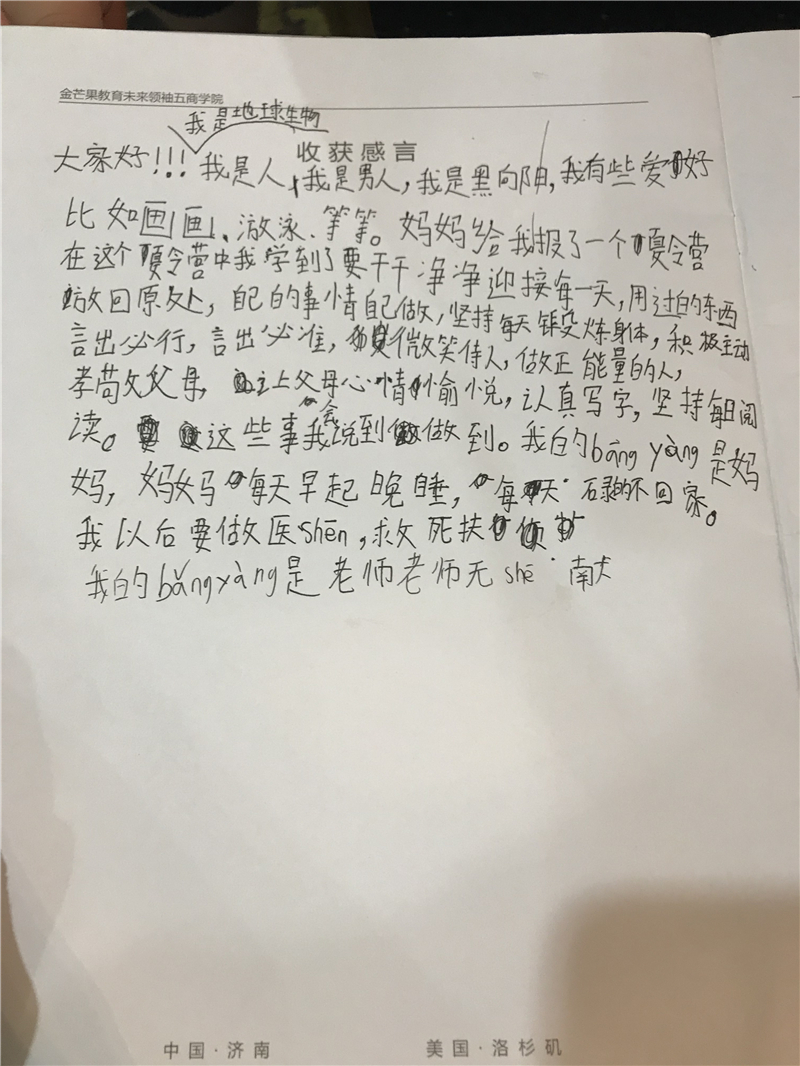 金芒果教育未来领袖五商学院
我是地球生物
收获感言
大家好!!! 我是人,我是男人,我是黑向阳,我有些爱好
比如画画、游泳、等等。妈妈给我报了一个夏令营
在这个夏令营中我学到了要干干净净迎接每一天,用过的东西
放回原处,自己的事情自己做,坚持每天锻炼身体,积极主动
言出必行,言出必准,微笑待人,做正能量的人,
孝敬父母,让父母心情愉悦,认真写字,坚持每日阅
读。这些事我会说到做到。我的bǎng yàng是妈
妈,妈妈每天早起晚睡,每天不回家。
我以后要做医shēn,救死扶
我的bǎngyàng是老师老师无shē
中国·济南
美国·洛杉矶